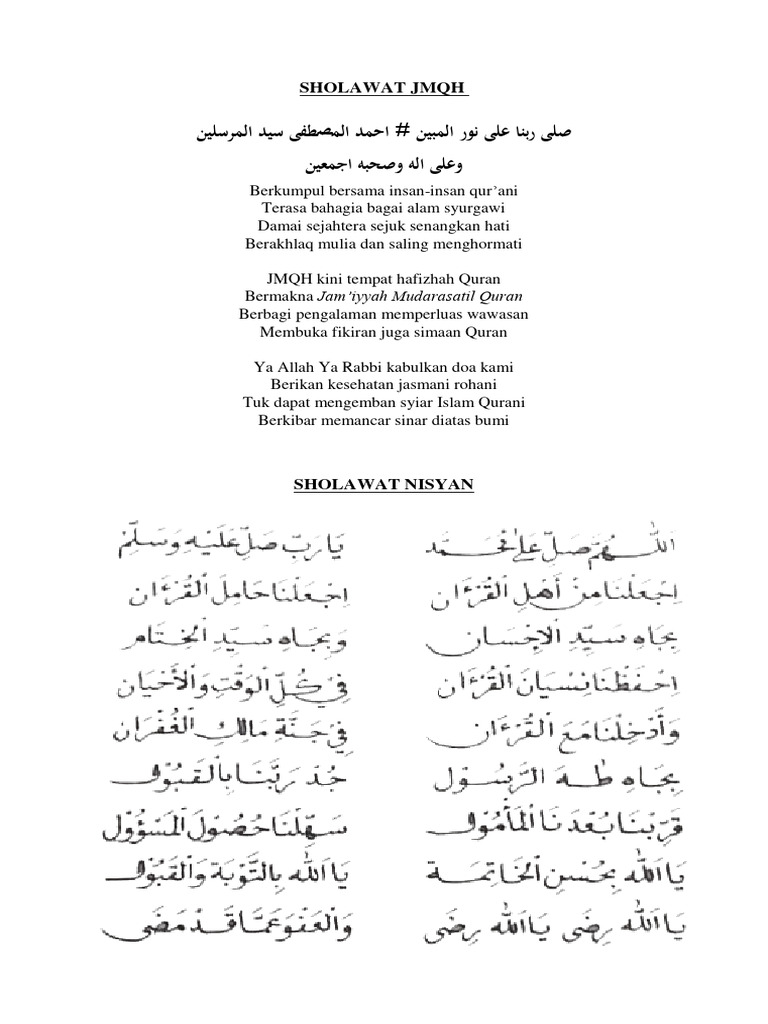 SHOLAWAT JMQH
صلى ربنا على نور المبين # احمد المصطفى سيد المرسلين
وعلى اله وصحبه اجمعين
Berkumpul bersama insan-insan qur’ani
Terasa bahagia bagai alam syurgawi
Damai sejahtera sejuk senangkan hati
Berakhlaq mulia dan saling menghormati
JMQH kini tempat hafizhah Quran
Bermakna Jam’iyyah Mudarasatil Quran
Berbagi pengalaman memperluas wawasan
Membuka fikiran juga simaan Quran
Ya Allah Ya Rabbi kabulkan doa kami
Berikan kesehatan jasmani rohani
Tuk dapat mengemban syiar Islam Qurani
Berkibar memancar sinar diatas bumi
SHOLAWAT NISYAN
اَللّٰهُمَّ صَلِّ عَلٰى مُحَمَّد يَارَبِّ صَلِّ عَلَيْهِ وَسَلِّمْ
اِجْعَلْنَا مِنْ أَهْلِ الْقُرْءَان اِجْعَلْنَا حَامِلَ الْقُرْءَان
بِجَاهِ سَيِّدِ الْاِحْسَان وَبِجَاهِ سَيِّدِ الْخِتَام
اِحْفَظْنَا نِسْيَانَ الْقُرْءَان فِيْ كُلِّ الْوَقْتِ وَالْأَحْيَان
وَأَدْخِلْنَا مَعَ الْقُرْءَان فِيْ جَنَّةِ مَالِكِ الْغُفْرَان
بِجَاهِ طٰهَ الرَّسُوْل جُدْ رَبَّنَا بِالْقَبُوْل
قَرِّبْنَا بُعْدَنَا الْمَأْمُوْل سَهِّلْنَا حُصُوْلَ الْمَسْؤُوْل
يَا اَللّٰه بِحُسْنِ الْخَاتِمَة يَا اَللّٰه بِالتَّوْبَةِ وَالْقَبُوْل
يَا اَللّٰه رِضَى يَا اَللّٰه رِضَى وَالْعَفْوَ عَمَّا قَدْ مَضَى